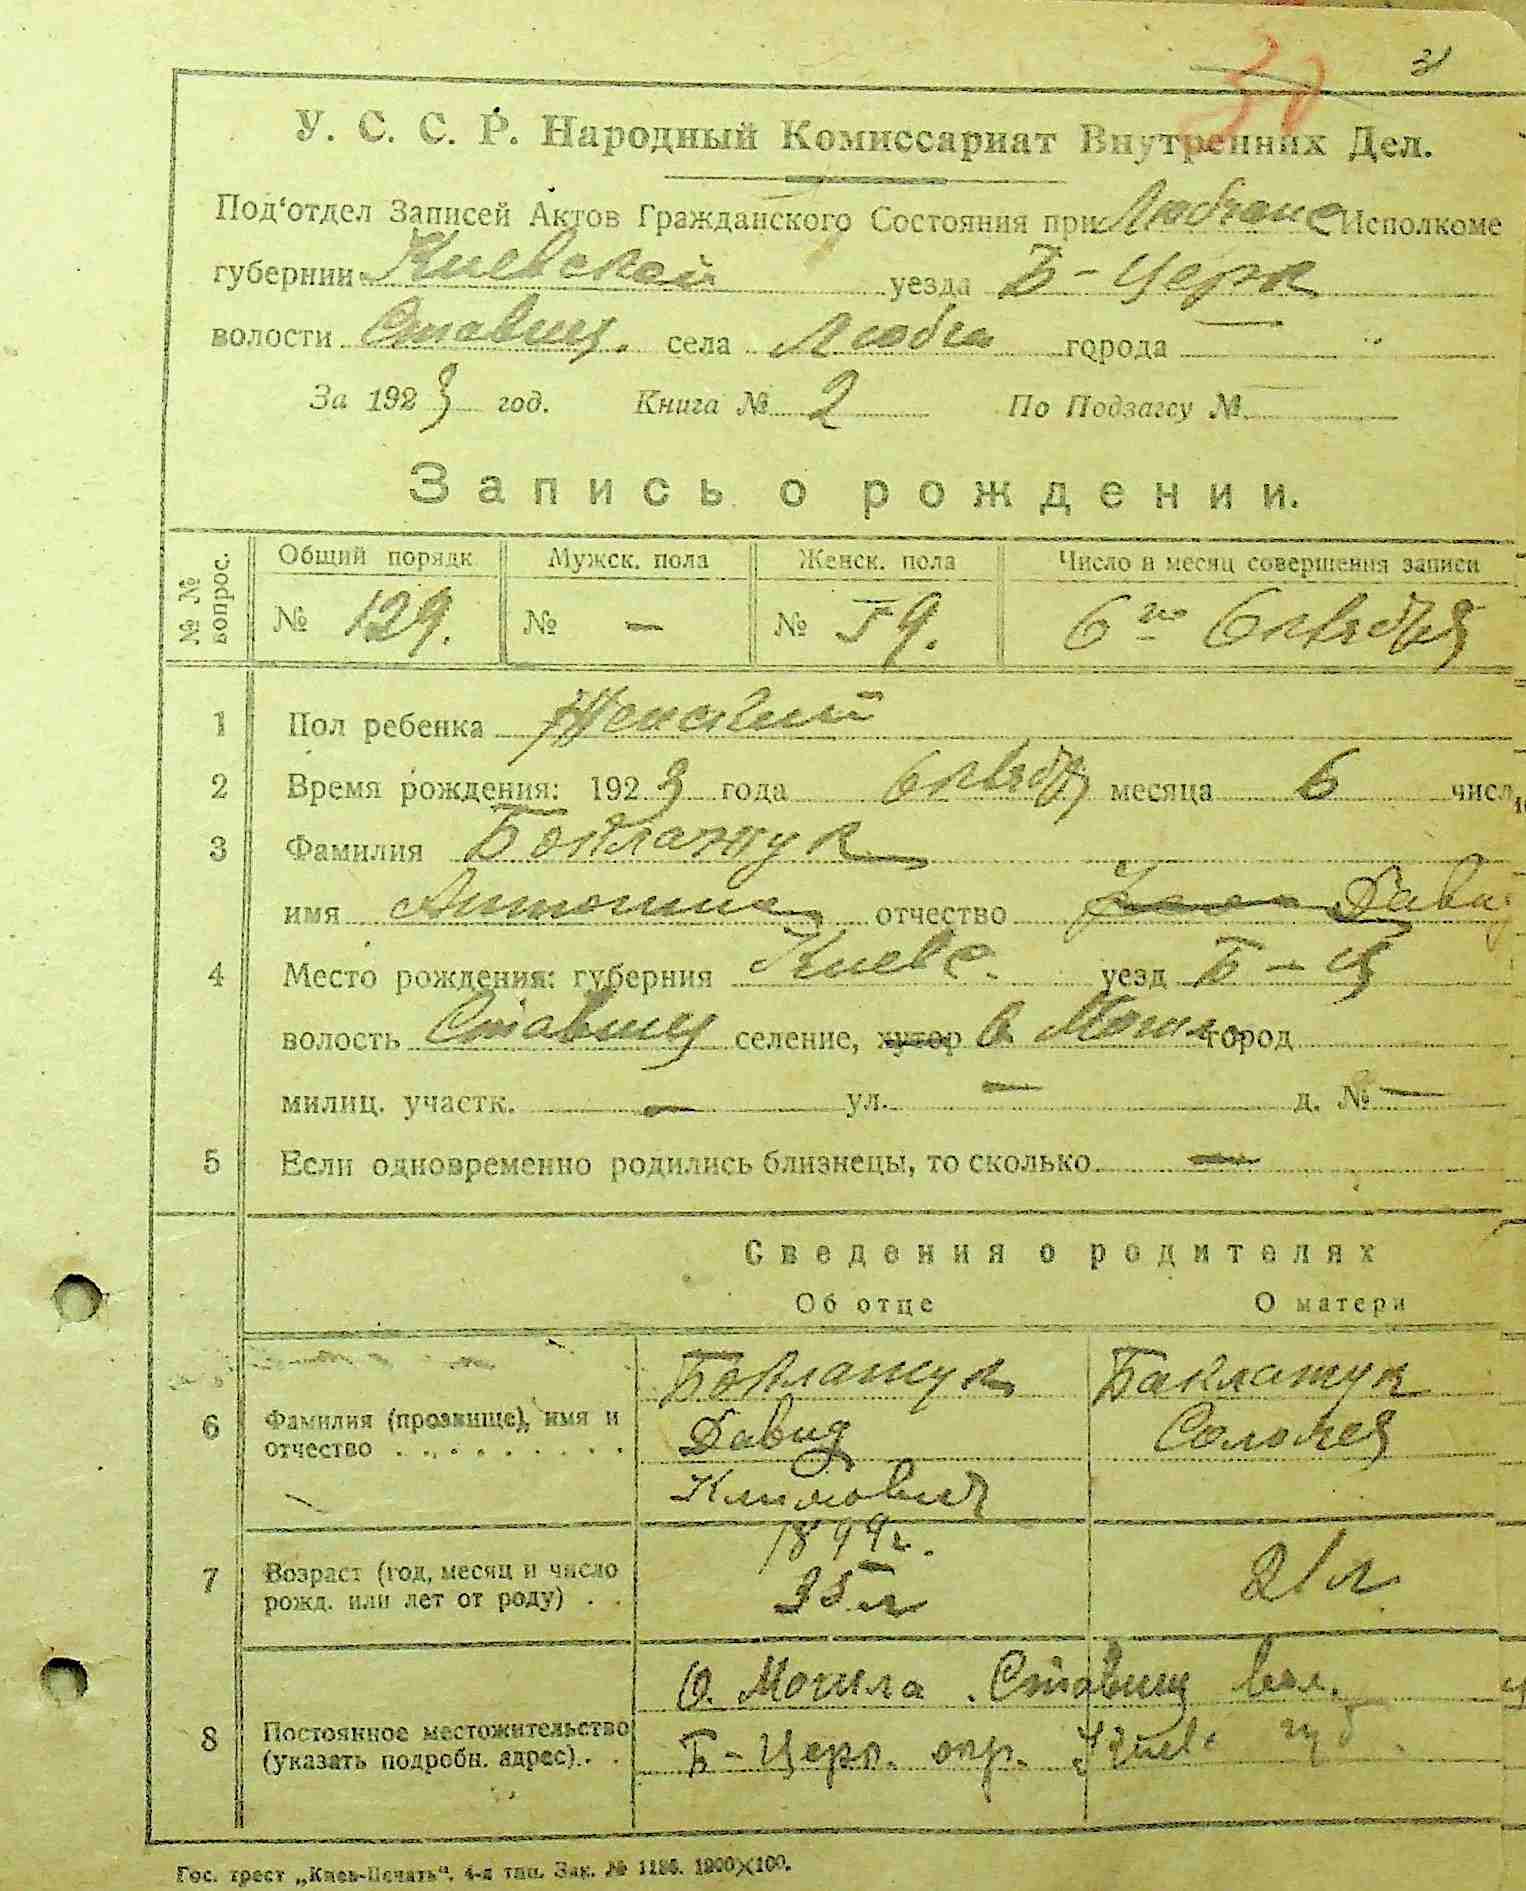 31
30
У. С. С. Р. Народный Комиссариат Внутренних Дел.
Под'отдел Записей Актов Гражданского Состояния при Исполкоме
губернии Киевской уезда Б-Церк
волости Ставищ. села Любча города
За 1923 год. Книга № 2 По Подзагсу №
Запись о рождении.
№ № вопрос. Общий порядк Мужск. пола Женск. пола Число и месяц совершения записи
№ 129. № — № 59. 6го Октября
1 Пол ребенка Женский
2 Время рождения: 1923 года Октябр месяца 6 числ
3 Фамилия Бойлатук
имя Антонина отчество Давид
4 Место рождения: губерния Киевс. уезд Б-Ц
волость Ставищ селение, хутор О. Могил. город
милиц. участк. — ул. — д. № —
5 Если одновременно родились близнецы, то сколько —
Сведения о родителях
Об отце О матери
6 Фамилия (прозвище), имя и отчество
Давид
Климович
Соломея
7 Возраст (год, месяц и число рожд. или лет от роду) . .
1899г.
21 л
8 Постоянное местожительство (указать подробн. адрес). . .
О. Могила. Ставищ вол.
Б-Церк. окр. Киев губ.
Гос. трест „Киев-Печать“. 4-я тип. Зак. № 1186. 1200×100.